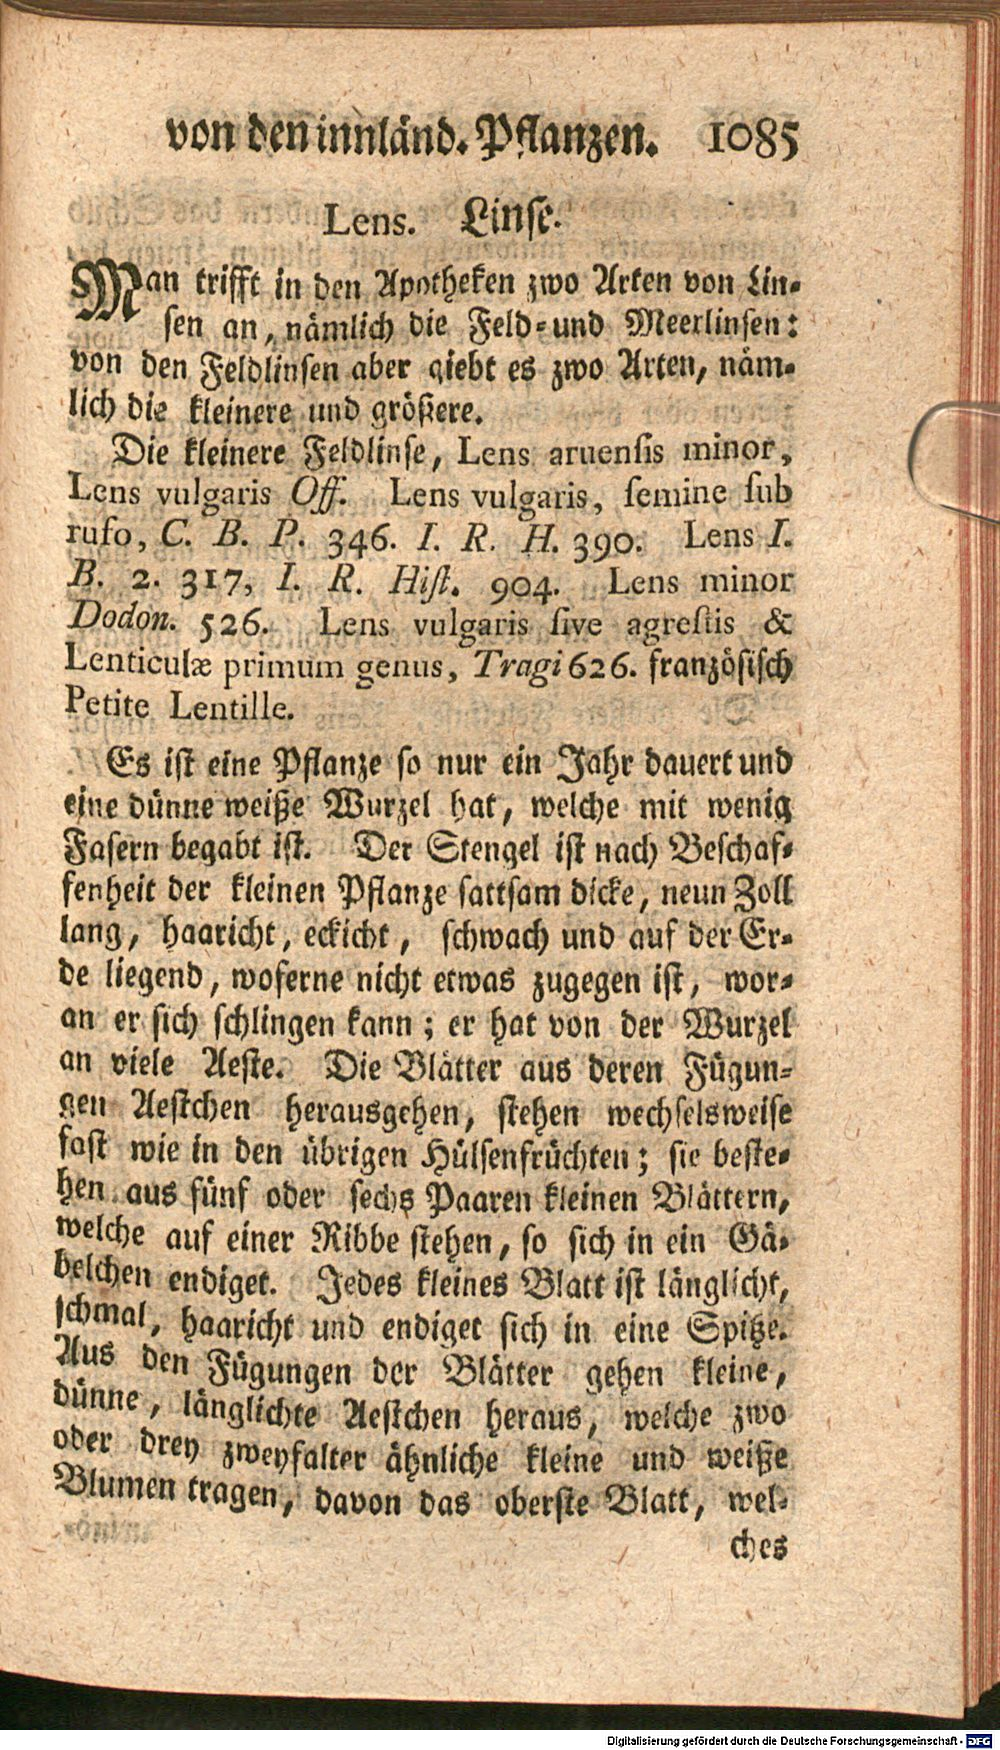 von den innländ. Pflanzen. 1085
Lens. Linse.
Man trifft in den Apotheken zwo Arten von Lin-
sen an, nämlich die Feld-und Meerlinsen:
von den Feldlinsen aber giebt es zwo Arten, näm-
lich die kleinere und größere.
Die kleinere Feldlinse, Lens aruensis minor,
Lens vulgaris Off. Lens vulgaris, semine sub
rufo, C. B. P. 346. I. R. H. 390. Lens I.
B. 2. 317, I. R. Hist. 904. Lens minor
Dodon. 526. Lens vulgaris sive agrestis &
Lenticulæ primum genus, Tragi 626. französisch
Petite Lentille.
Es ist eine Pflanze so nur ein Jahr dauert und
eine dünne weiße Wurzel hat, welche mit wenig
Fasern begabt ist. Der Stengel ist nach Beschaf-
fenheit der kleinen Pflanze sattsam dicke, neun Zoll
lang, haaricht, eckicht, schwach und auf der Er-
de liegend, woferne nicht etwas zugegen ist, wor-
an er sich schlingen kann; er hat von der Wurzel
an viele Aeste. Die Blätter aus deren Fügun-
gen Aestchen herausgehen, stehen wechselsweise
fast wie in den übrigen Hülsenfrüchten; sie beste-
hen aus fünf oder sechs Paaren kleinen Blättern,
welche auf einer Ribbe stehen, so sich in ein Gä-
belchen endiget. Jedes kleines Blatt ist länglicht,
schmal, haaricht und endiget sich in eine Spitze.
Aus den Fügungen der Blätter gehen kleine,
dünne, länglichte Aestchen heraus, welche zwo
oder drey zweyfalter ähnliche kleine und weiße
Blumen tragen, davon das oberste Blatt, wel-
ches
Digitalisierung gefördert durch die Deutsche Forschungsgemeinschaft - DFG